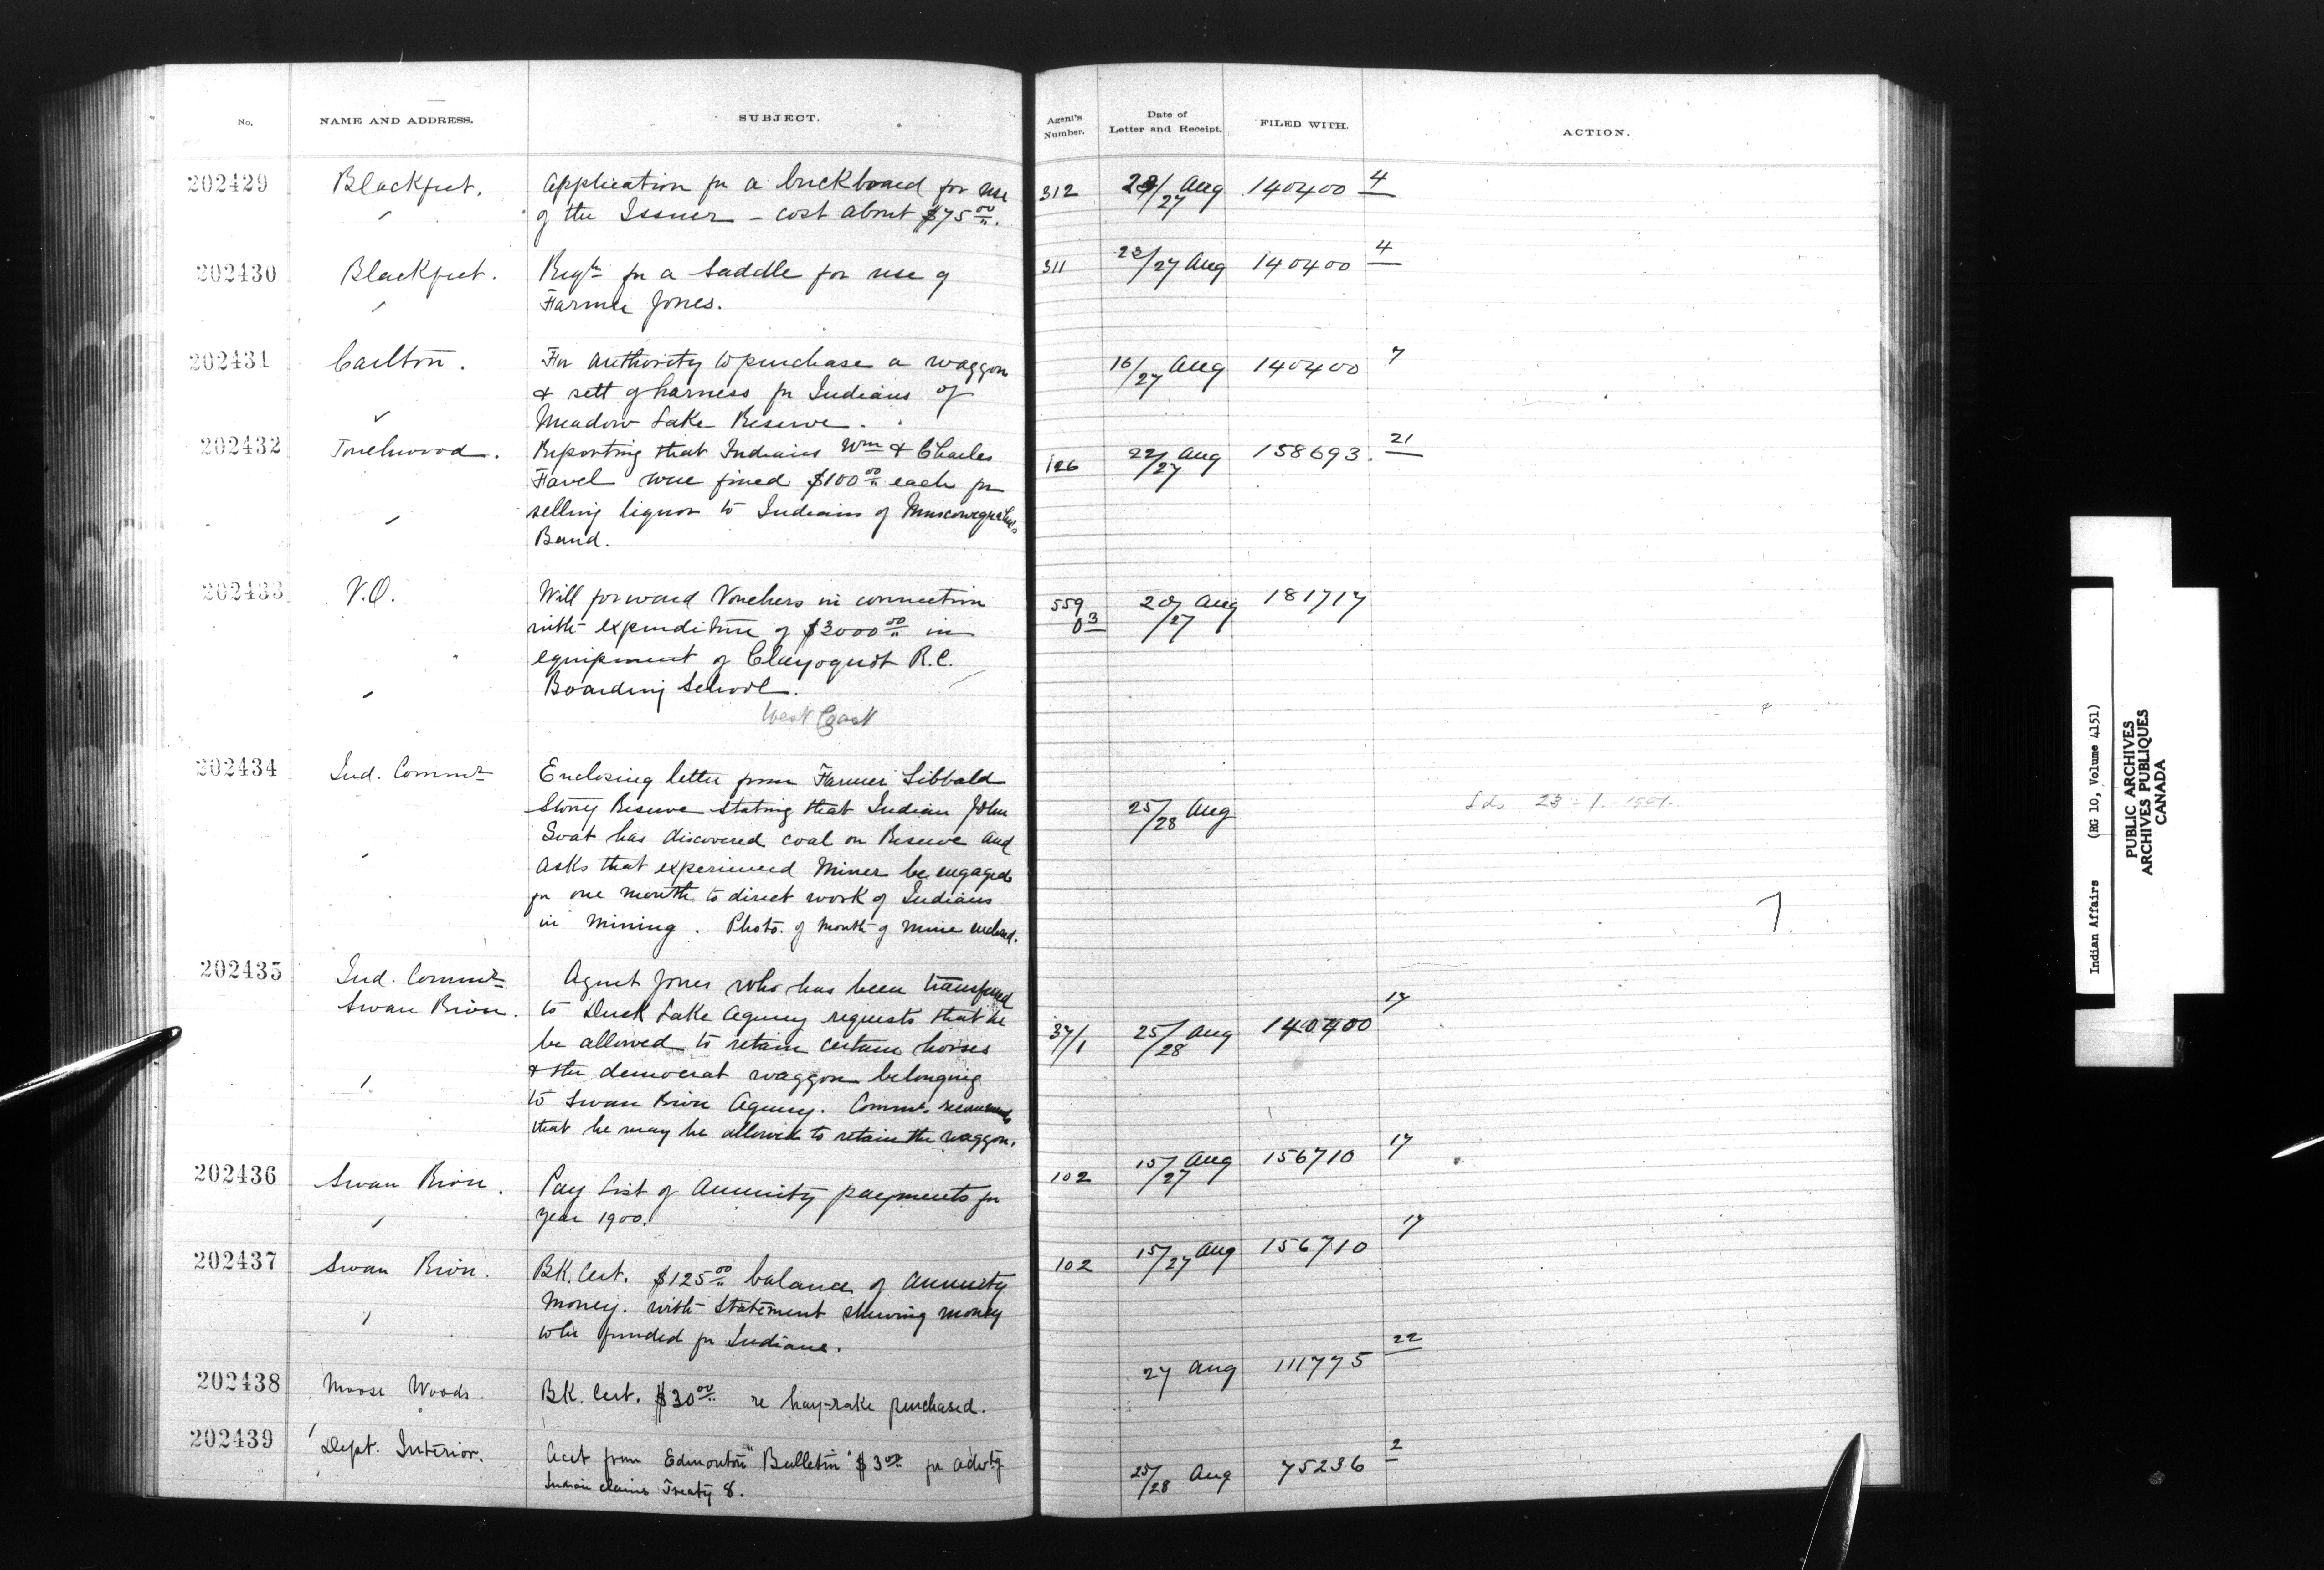 No. NAME AND ADDRESS. SUBJECT. Agent's Number. Date of Letter and Receipt. FILED WITH. ACTION.
202429 Blackfeet. Application for a buckboard for use 312 23/27 Aug 140400 4
of the Issuer – cost about $75 00/".
202430 Blackfeet. Reqn for a Saddle for use of 311 23/27 Aug 140400 4
Farmer Jones.
202431 Carlton. For authority to purchase a waggon 16/27 Aug 140400 7
& sett of harness for Indians of
Meadow Lake Reserve.
202432 Touchwood. Reporting that Indians Wm & Charles 126 22/27 Aug 158693. 21
Favel were fined $100 00/" each for
selling liquor to Indians of Muscowequahn's
Band.
202433 V.O. Will forward Vouchers in connection 559 03 20/27 Aug 181717
with expenditure of $3000 00/" in
equipment of Clayoquot R.C.
Boarding School.
West Coast
202434 Ind. Commr Enclosing letter from Farmer Sibbald
Stony Reserve stating that Indian John 25/28 Aug 23-1-1901.
has discovered coal on Reserve and
asks that experienced Miner be engaged
for one month to direct work of Indians
in Mining. Photo. of mouth of mine enclosed.
202435 Ind. Commr Agent Jones who has been transferred
Swan River. to Duck Lake Agency requests that he 37/1 25/28 Aug 140400 17
be allowed to retain certain horses
& the democrat waggon belonging
to Swan River Agency. Commr. recommends
that he may be allowed to retain the waggon.
202436 Swan River. Pay List of Annuity payments for 102 15/27 Aug 156710 17
year 1900.
202437 Swan River. BK. Cert. $125 00/" balance of annuity 102 15/27 Aug 156710 17
money. with statement shewing money
to be funded for Indians.
202438 Moose Woods. BK. Cert. $30 00/" re hay-rake purchased. 27 Aug 111775 22
202439 Dept. Interior. Acct from Edmonton "Bulletin" $3 00 for advtg 25/28 Aug 75236 2
Indian claims Treaty 8.
Indian Affairs (RG 10, Volume 4151)
PUBLIC ARCHIVES
ARCHIVES PUBLIQUES
CANADA